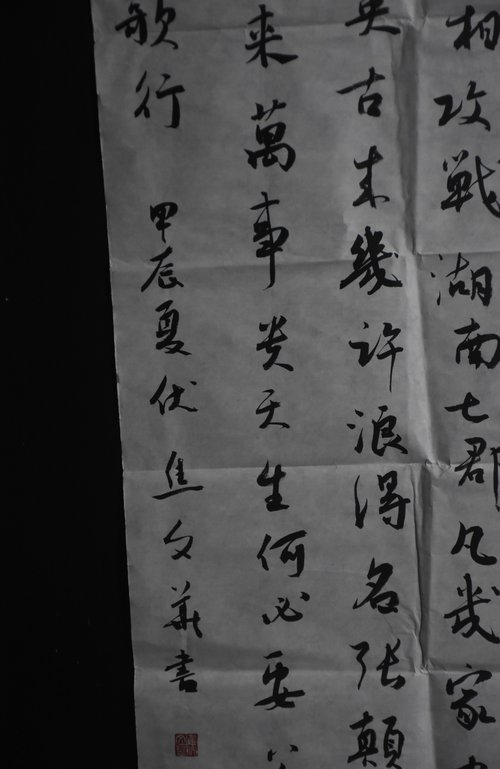 相攻戰湖南七郡凡幾家
英古来幾許浪得名張顛
来萬事貴天生何必要
歌行 甲辰夏伏 焦文華書